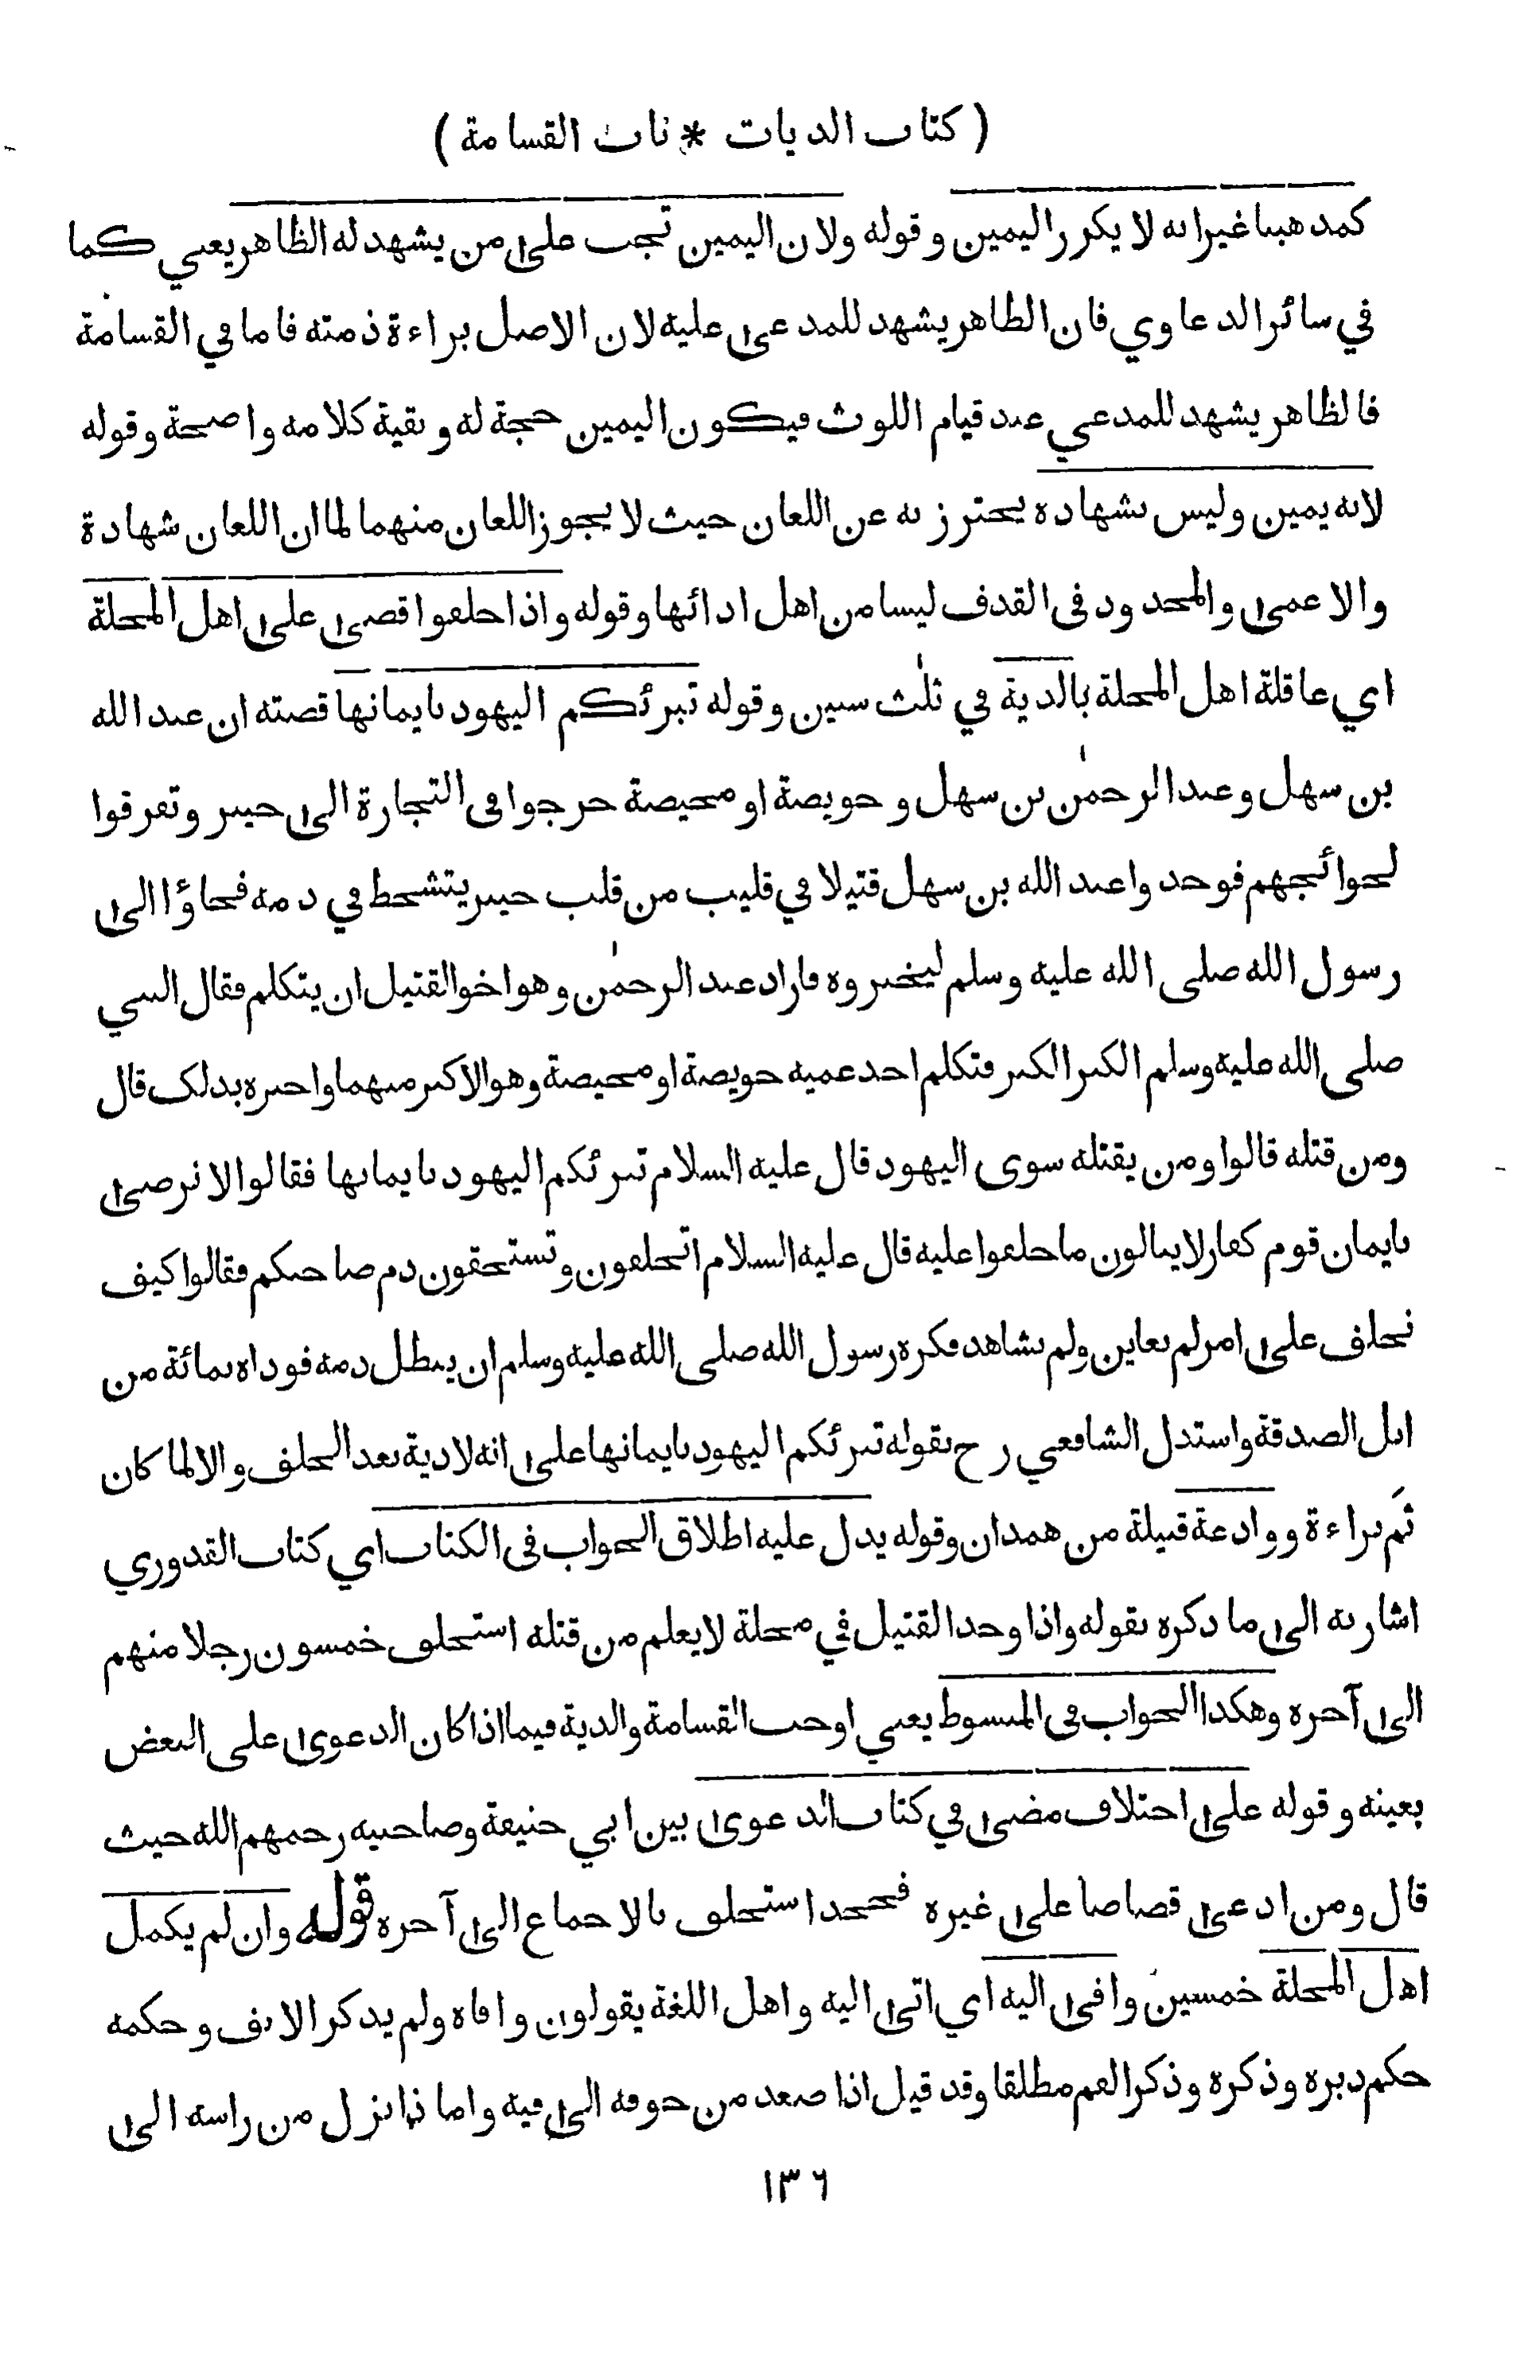 ( كتاب الديات * باب القسامة )
كمذهبنا غيرانه لا يكرر اليمين وقوله ولان اليمين تجب على من يشهد له الظاهر يعني كما
في سائر الدعاوي فان الظاهر يشهد للمدعى عليه لان الاصل براءة ذمته فاما في القسامة
فالظاهر يشهد للمدعي عند قيام اللوث فيكون اليمين حجة له وبقية كلامه واضحة وقوله
لانه يمين وليس بشهادة يحترز به عن اللعان حيث لا يجوز اللعان منهما لما ان اللعان شهادة
والاعمى والمحدود في القذف ليسا من اهل ادائها وقوله واذا حلفوا قضى على اهل المحلة
اي عاقلة اهل المحلة بالدية في ثلٰث سنين وقوله تبرئكم اليهود بايمانها قصته ان عبد الله
بن سهل وعبد الرحمٰن بن سهل وحويصة او محيصة خرجوا في التجارة الى خيبر وتفرقوا
لحوائجهم فوجدوا عبد الله بن سهل قتيلا في قليب من قلب خيبر يتشحط في دمه فجاؤا الى
رسول الله صلى الله عليه وسلم ليخبروه فاراد عبد الرحمٰن وهو اخو القتيل ان يتكلم فقال النبي
صلى الله عليه وسلم الكبر الكبر فتكلم احد عميه حويصة او محيصة وهو الاكبر منهما واخبره بذلك قال
ومن قتله قالوا ومن يقتله سوى اليهود قال عليه السلام تبرئكم اليهود بايمانها فقالوا لا نرضى
بايمان قوم كفار لا يبالون ما حلفوا عليه قال عليه السلام اتحلفون وتستحقون دم صاحبكم فقالوا كيف
نحلف على امر لم نعاين ولم نشاهد فكره رسول الله صلى الله عليه وسلم ان يبطل دمه فوداه بمائة من
ابل الصدقة واستدل الشافعي رح بقوله تبرئكم اليهود بايمانها على انه لا دية بعد الحلف والا لما كان
ثَم براءة ووادعة قبيلة من همدان وقوله يدل عليه اطلاق الجواب في الكتاب اي كتاب القدوري
اشار به الى ما ذكره بقوله واذا وجد القتيل في محلة لا يعلم من قتله استحلف خمسون رجلا منهم
الى آخره وهكذا الجواب في المبسوط يعني اوجب القسامة والدية فيما اذا كان الدعوى على البعض
بعينه وقوله على اختلاف مضى في كتاب الدعوى بين ابي حنيفة وصاحبيه رحمهم الله حيث
قال ومن ادعى قصاصا على غيره فجحد استحلف بالاجماع الى آخره قوله وان لم يكمل
اهل المحلة خمسين وافى اليه اي اتى اليه واهل اللغة يقولون وافاه ولم يذكر الانف وحكمه
حكم دبره وذكره وذكر الفم مطلقا وقد قيل اذا صعد من جوفه الى فيه واما اذا نزل من راسه الى
١٣٦